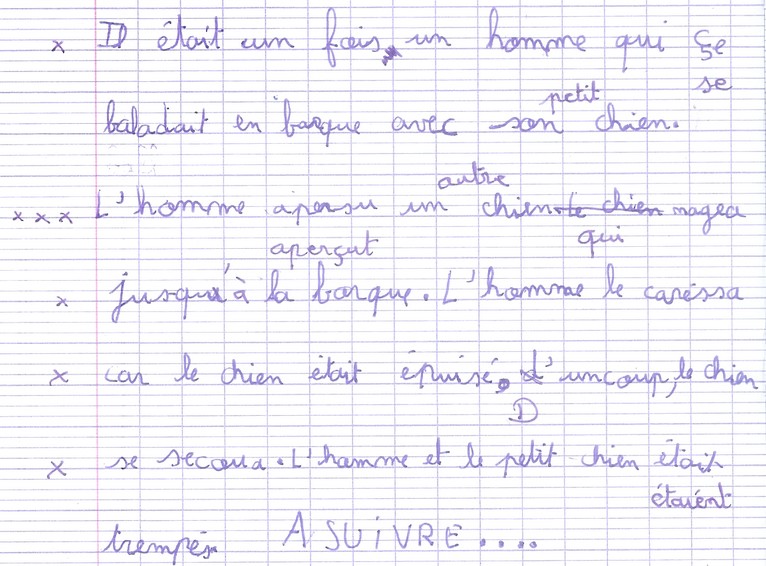 x Il était un fois, un homme qui çe
se
petit
baladiait en barque avec son chien.
autre
x x x L'homme apersu un chien le chien nagea
aperçut qui
x jusqu'à la barque. L'homme le caréssa
x car le chien était épuisé. d'uncoup, le chien
D
x se secoua. L'homme et le petit chien était
étaient
trempés. A SUiVRE....